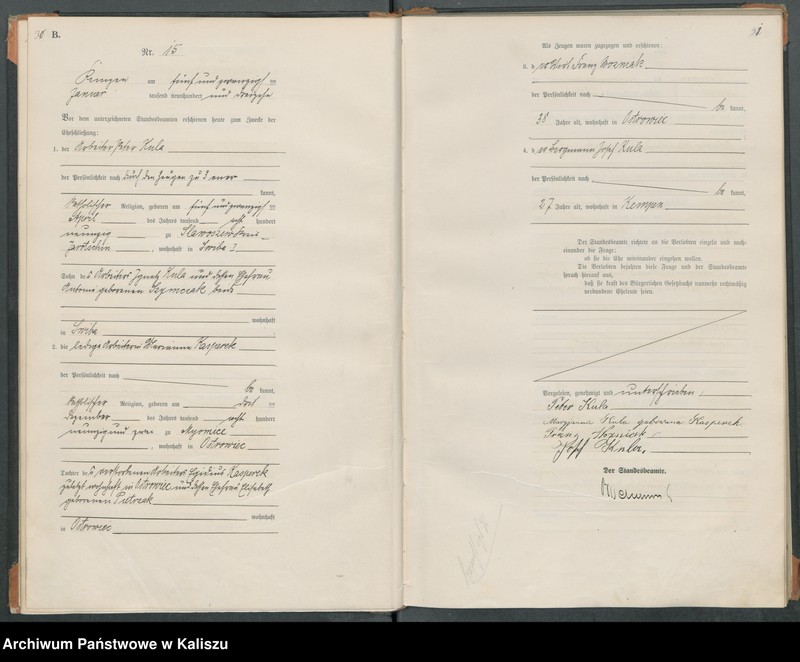 B.
Nr. 15
Kempen am fünf und zwanzigsten
Januar tausend neunhundert und dreizehn
Vor dem unterzeichneten Standesbeamten erschienen heute zum Zwecke der
Eheschließung:
1. der Arbeiter Peter Kula
der Persönlichkeit nach durch den Zeugen zu 3 
kannt,
katholischer Religion, geboren am fünf und zwanzigsten
April des Jahres tausend acht hundert
neunzig zu Slawoszew Kreis
Jarotschin, wohnhaft in Swiba
Sohn des Arbeiters Ignatz Kula und dessen Ehefrau
Antonie geborenen beide
wohnhaft
in Swiba
2. die ledige Arbeiterin Marianna Kasperek
der Persönlichkeit nach
be kannt,
katholischer Religion, geboren am
Dezember des Jahres tausend acht hundert
neunzig und zwei zu Myomice
, wohnhaft in Ostrowiec
Tochter des verstorbenen Arbeiters Kasperek
zuletzt wohnhaft in Ostrowiec und dessen Ehefrau Elisabeth
geborenen Pietrzak
wohnhaft
in Ostrowiec
Als Zeugen waren zugezogen und erschienen:
3. der Wirt Franz Wozniak
der Persönlichkeit nach
be kannt,
38 Jahre alt, wohnhaft in Ostrowiec
4. der Bergmann Josef Kula
der Persönlichkeit nach
be kannt,
27 Jahre alt, wohnhaft in Kempen
Der Standesbeamte richtete an die Verlobten einzeln und nach-
einander die Frage:
ob sie die Ehe miteinander eingehen wollen.
Die Verlobten bejahten diese Frage und der Standesbeamte
sprach hierauf aus,
daß sie kraft des Bürgerlichen Gesetzbuchs nunmehr rechtmäßig
verbundene Eheleute seien.
Vorgelesen, genehmigt und unterschrieben:
Peter Kula
Maryjanna Kula geborena Kasperek
Franz Wozniak
Josef Kula.
Der Standesbeamte.
Archiwum Państwowe w Kaliszu